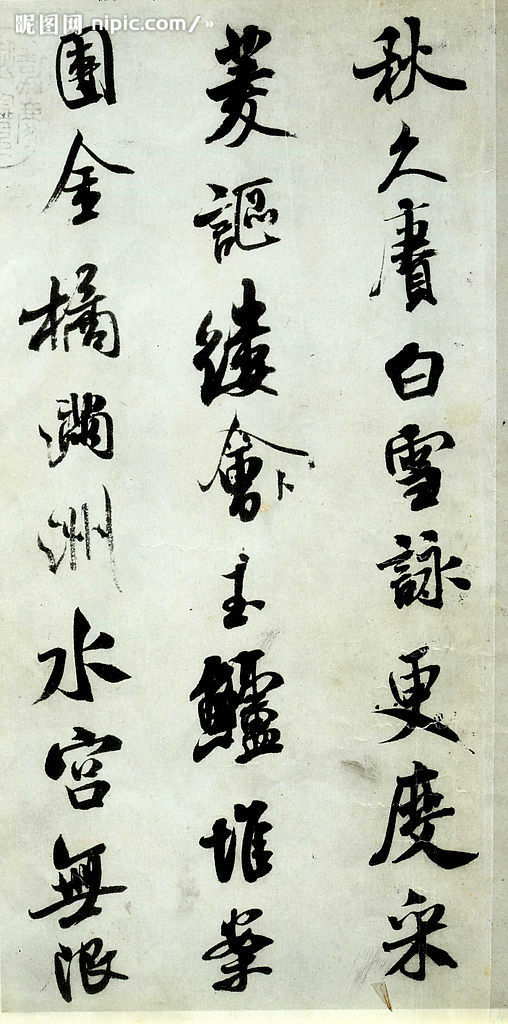 昵图网 nipic.com/
秋久賡白雪詠更度采
菱謳縷會卜玉鱸堆案
團金橘滿洲水宮無限